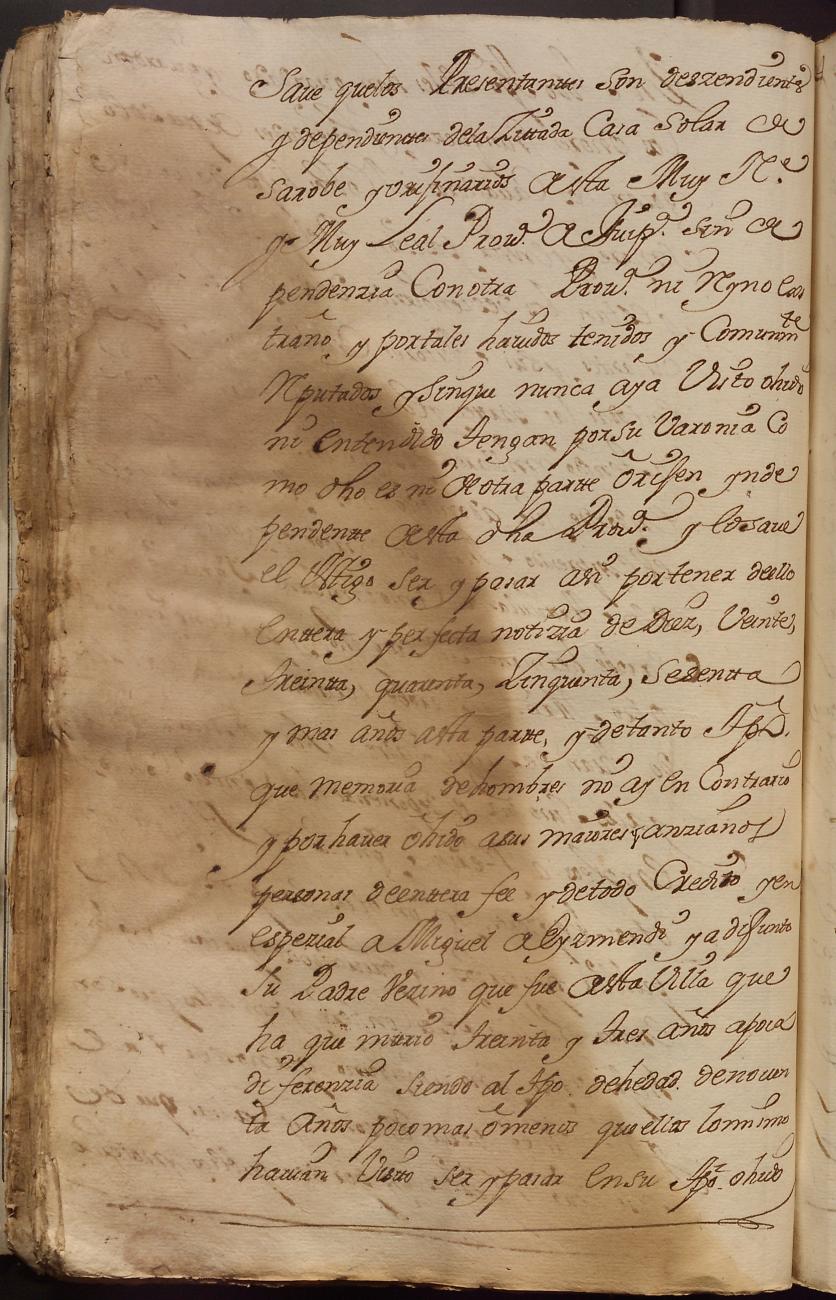 Saue quelos Presentantes son deszendientes
y dependientes dela Zittada Casa Solar de
sarobe y orijinarios desta Muy N.e
y e Muy Leal Prov.a de Guip.a sin de
pendenzia Con otra Prov.a ni Reyno Ex
traño y portales hauidos tenidos y Comunm.te
Reputados y sinque nunca aya Visto ohido
ni Entendido tengan por su Varonia Co
mo dho es ni de otra partte Orijen ynde
pendentte desta dha Prov.a y lo saue
el testigo ser y pasar asi por tener dello
Enttera y perfecta notizia de Diez, Veinte,
treintta, quarenta, Zinquenta, Sesentta
y mas años desta partte, y de tanto tpo.
que memoria de hombres no ay En Contrario
y por hauer ohido asus maiores y anzianos
personas deenttera fee y de todo Credito y en
espezial a Miguel de Eyzmendi ya difunto
su Padre Vezino que fue desta Villa que
ha que murio treinta y tres años apoca
diferenzia siendo al tpo. de hedad de nouen
ta Años poco mas o menos que ellos lo mismo
hauian Visto ser y pasar En su tpo. ohido